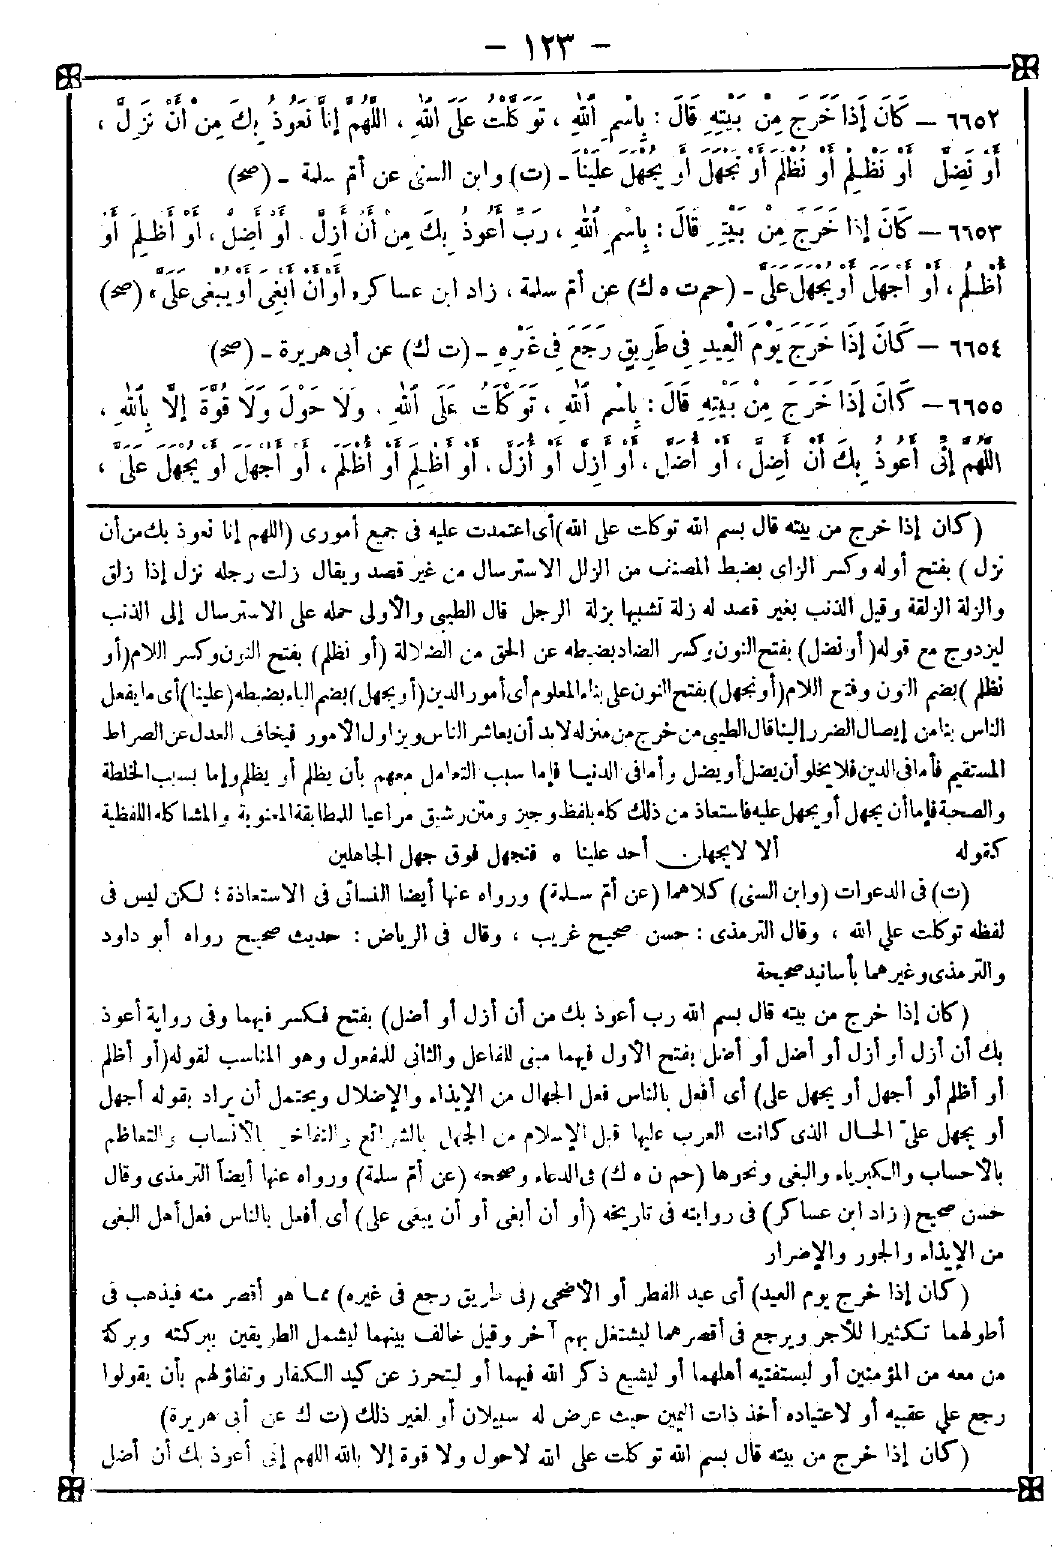 – ١٢٣ –
٦٦٥٢ – كَانَ إِذَا خَرَجَ مِنْ بَيْتِهِ قَالَ : بِاسْمِ اللّٰهِ ، تَوَكَّلْتُ عَلَى اللّٰهِ ، اللَّهُمَّ إِنَّا نَعُوذُ بِكَ مِنْ أَنْ نَزِلَّ ،
أَوْ نَضِلَّ أَوْ نَظْلِمَ أَوْ نُظْلَمَ أَوْ نَجْهَلَ أَوْ يُجْهَلَ عَلَيْنَا – (ت) وابن السنى عن أم سلمة – (صح)
٦٦٥٣ – كَانَ إِذَا خَرَجَ مِنْ بَيْتِهِ قَالَ : بِاسْمِ اللّٰهِ ، رَبِّ أَعُوذُ بِكَ مِنْ أَنْ أَزِلَّ . أَوْ أَضِلَّ ، أَوْ أَظْلِمَ أَوْ
أُظْلَمَ ، أَوْ أَجْهَلَ أَوْ يُجْهَلَ عَلَىَّ – (حم ت ه ك) عن أم سلمة ، زاد ابن عساكر» أَوْ أَنْ أَبْغِىَ أَوْ يُبْغَى عَلَىَّ» (صح)
٦٦٥٤ – كَانَ إِذَا خَرَجَ يَوْمَ الْعِيدِ فِى طَرِيقٍ رَجَعَ فِى غَيْرِهِ – (ت ك) عن أبى هريرة – (صح)
٦٦٥٥ – كَانَ إِذَا خَرَجَ مِنْ بَيْتِهِ قَالَ : بِاسْمِ اللّٰهِ ، تَوَكَّلْتُ عَلَى اللّٰهِ . وَلَا حَوْلَ وَلَا قُوَّةَ إِلَّا بِاللّٰهِ ،
اللَّهُمَّ إِنِّى أَعُوذُ بِكَ أَنْ أَضِلَّ ، أَوْ أُضَلَّ ، أَوْ أَزِلَّ أَوْ أُزَلَّ . أَوْ أَظْلِمَ أَوْ أُظْلَمَ ، أَوْ أَجْهَلَ أَوْ يُجْهَلَ عَلَىَّ ،
(كان إذا خرج من بيته قال بسم الله توكلت على الله) أى اعتمدت عليه فى جميع أمورى (اللهم إنا نعوذ بك من أن
نزل ) بفتح أوله وكسر الزاى بضبط المصنف من الزلل الاسترسال من غير قصد ويقال زلت رجله نزل إذا زلق
والزلة الزلقة وقيل الذنب بغير قصد له زلة تشبيها بزلة الرجل قال الطيبى والأولى حمله على الاسترسال إلى الذنب
ليزدوج مع قوله( أو نضل) بفتح النون وكسر الضاد بضبطه عن الحق من الضلالة (أو نظلم) بفتح النون وكسر اللام(أو
نظلم )بضم النون وفتح اللام(أو نجهل)بفتح النون على بناء المعلوم أى أمور الدين(أو يجهل)بضم الياء بضبطه(علينا)أى ما يفعل
الناس بنا من إيصال الضرر إلينا قال الطيبى من خرج من منزله لا بد أن يعاشر الناس ويزاول الأمور فيخاف العدل عن الصراط
المستقيم فأما فى الدين فلا يخلو أن يضل أو يضل وأما فى الدنيا فإما سبب التعامل معهم بأن يظلم أو يظلم وإما بسبب الخلطة
والصحبة فإما أن يجهل أو يجهل عليه فاستعاذ من ذلك كله بلفظ وجيز ومتن رشيق مراعيا للمطابقة المعنوية والمشاكلة اللفظية
كقوله ألا لا يجهلن أحد علينا ه فنجهل فوق جهل الجاهلين
(ت) فى الدعوات (وابن السنى) كلاهما (عن أم سلمة) ورواه عنها أيضا النسائى فى الاستعاذة ؛ لكن ليس فى
لفظه توكلت على الله ، وقال الترمذى : حسن صحيح غريب ، وقال فى الرياض : حديث صحيح رواه أبو داود
والترمذى وغيرهما بأسانيد صحيحة
(كان إذا خرج من بيته قال بسم الله رب أعوذ بك من أن أزل أو أضل) بفتح فكسر فيهما وفى رواية أعوذ
بك أن أزل أو أزل أو أضل أو أضل بفتح الأول فيهما مبنى للفاعل والثانى للمفعول وهو المناسب لقوله(أو أظلم
أو أظلم أو أجهل أو يجهل على) أى أفعل بالناس فعل الجهال من الإيذاء والإضلال ويحتمل أن يراد بقوله أجهل
أو يجهل علىّ الحال الذى كانت العرب عليها قبل الإسلام من الجهل بالشرائع والتفاخر بالأنساب والتعاظم
بالأحساب والكبرياء والبغى ونحوها (حم ن ه ك) فى الدعاء وصححه (عن أم سلمة) ورواه عنها أيضاً الترمذى وقال
حسن صحيح (زاد ابن عساكر) فى روايته فى تاريخه (أو أن أبغى أو أن يبغى على) أى أفعل بالناس فعل أهل البغى
من الإيذاء والجور والإضرار
(كان إذا خرج يوم العيد) أى عيد الفطر أو الأضحى (فى طريق رجع فى غيره) مما هو أقصر منه فيذهب فى
أطولهما تكثيرا للأجر ويرجع فى أقصرهما ليشتغل بهم آخر وقيل خالف بينهما ليشمل الطريقين ببركته وبركة
من معه من المؤمنين أو ليستفتيه أهلهما أو ليشيع ذكر الله فيهما أو ليتحرز عن كيد الكفار وتفاؤلهم بأن يقولوا
رجع على عقبيه أو لاعتياده أخذ ذات اليمين حيث عرض له سبيلان أو لغير ذلك (ت ك عن أبى هريرة)
(كان إذا خرج من بيته قال بسم الله توكلت على الله لاحول ولا قوة إلا بالله اللهم إنى أعوذ بك أن أضل